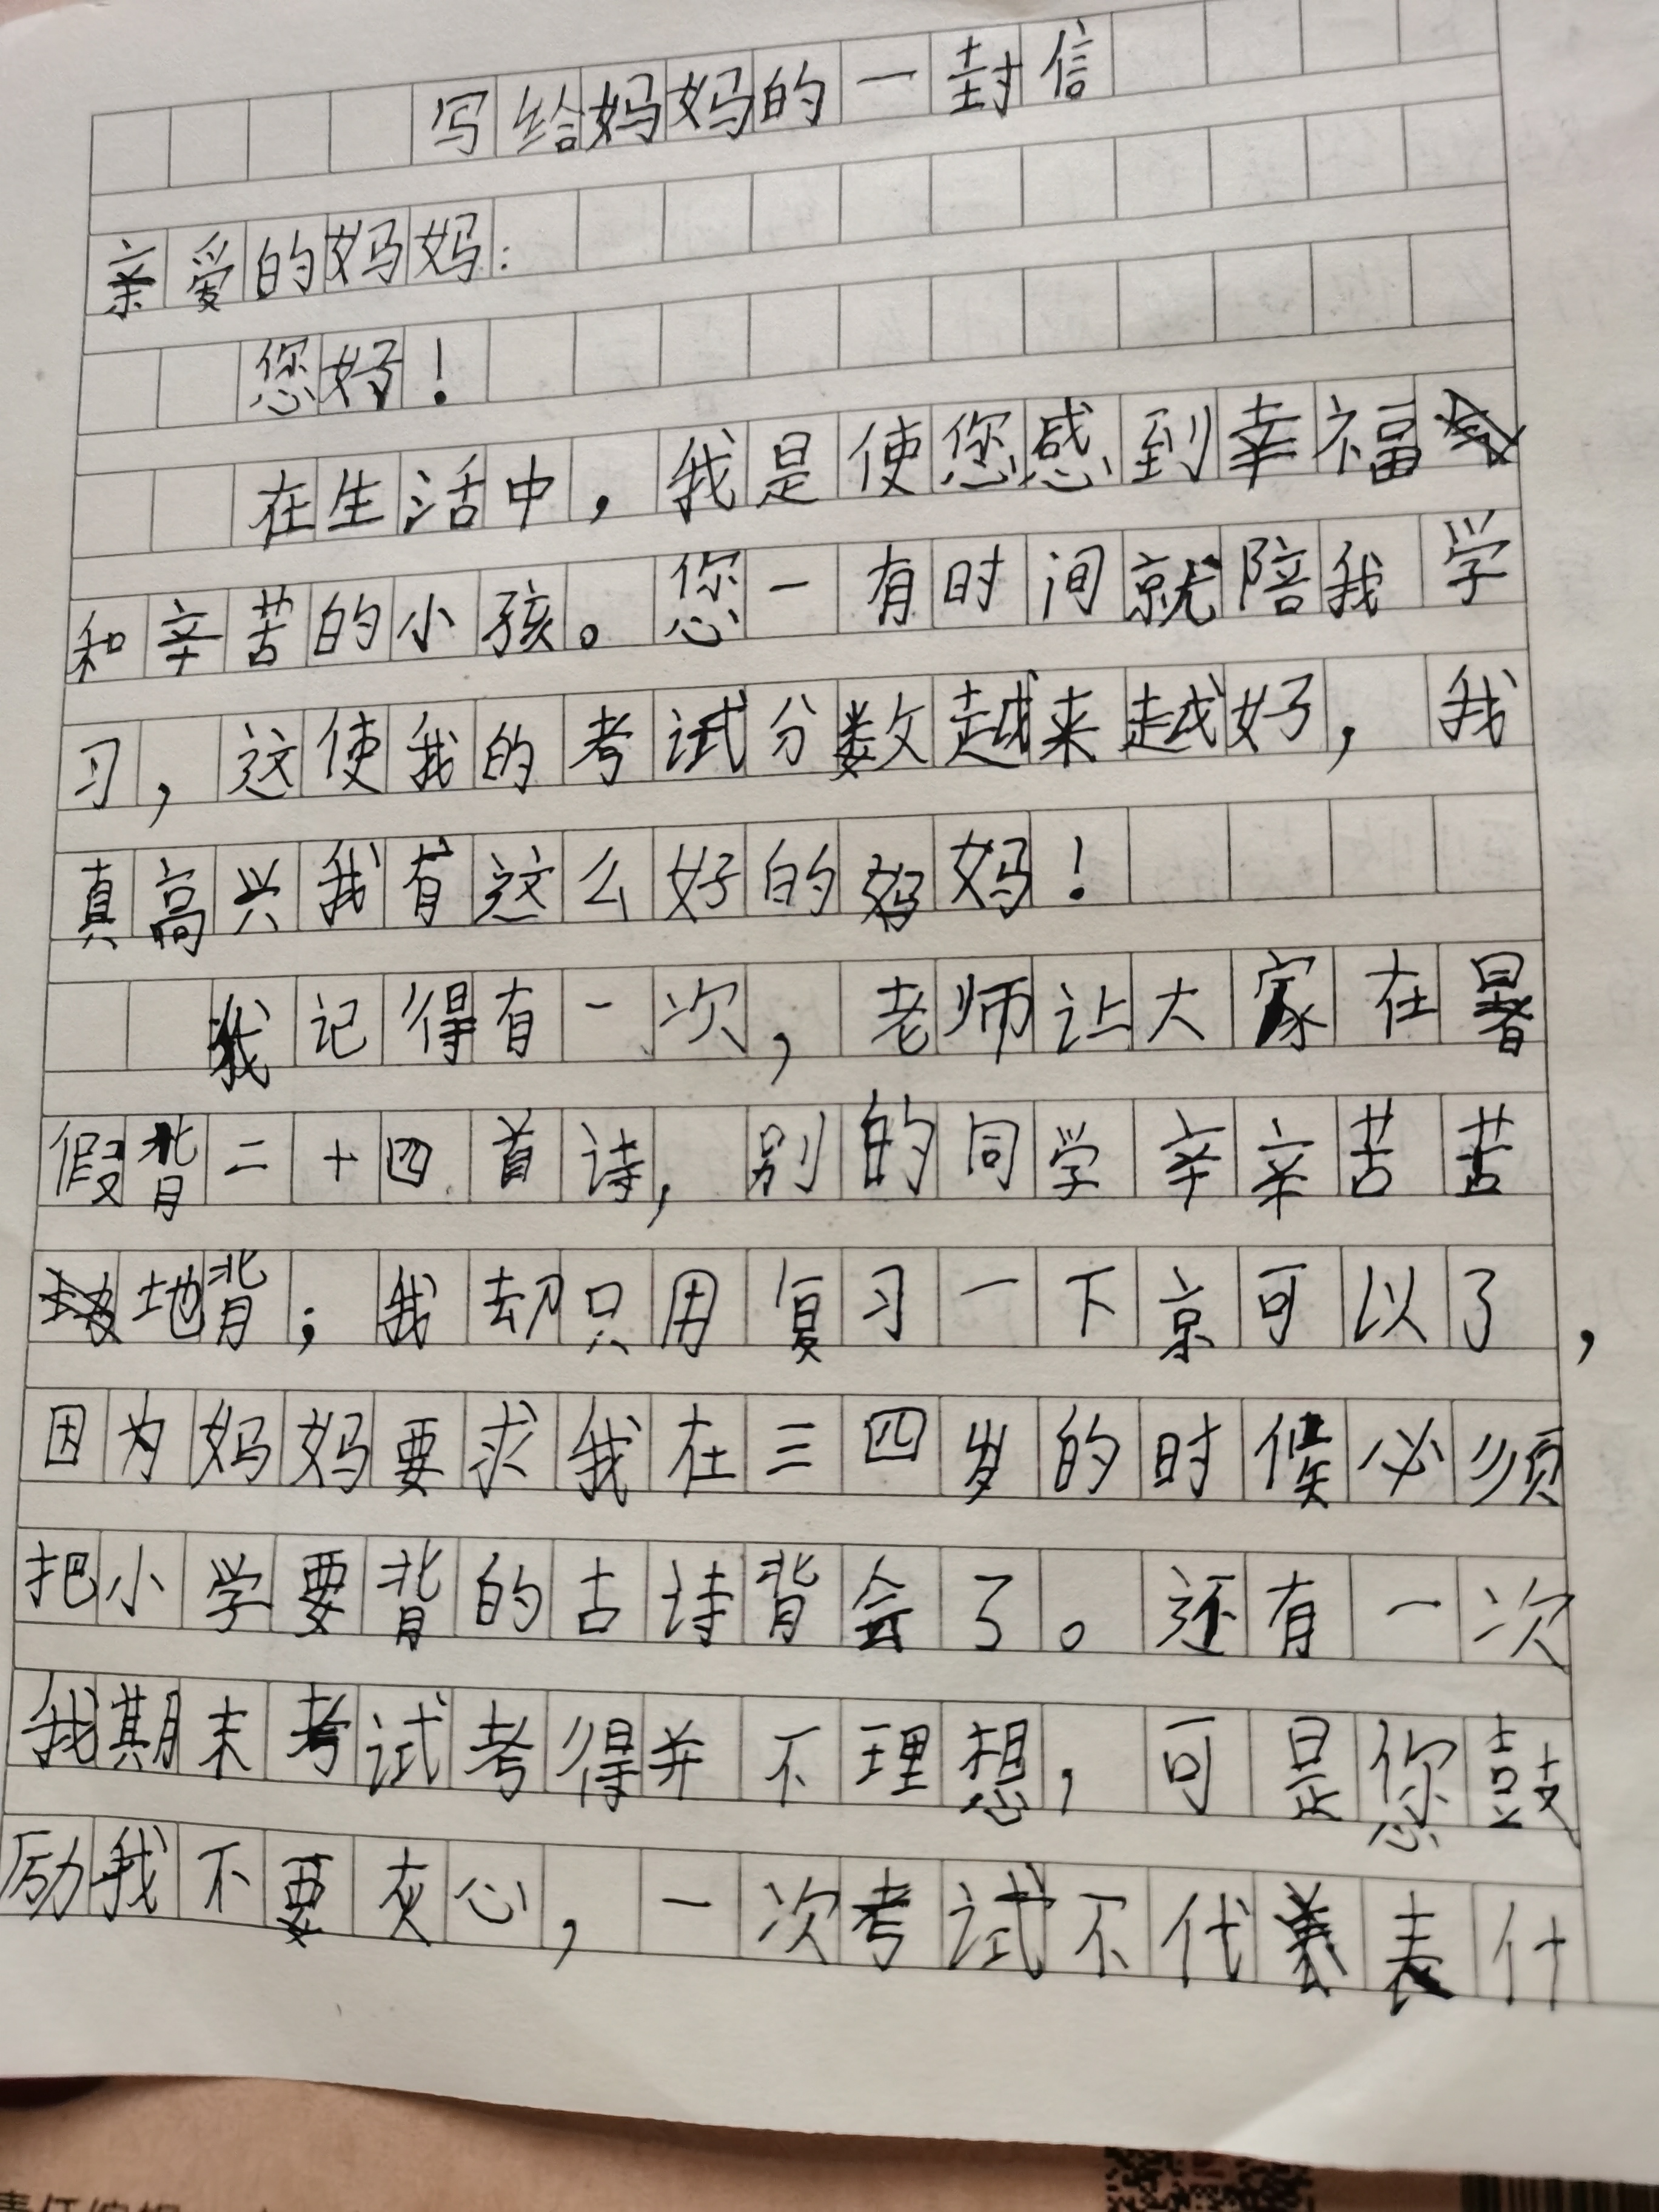 写给妈妈的一封信
亲爱的妈妈：
您好！
在生活中，我是使您感到幸福
和辛苦的小孩。您一有时间就陪我学
习，这使我的考试分数越来越好，我
真高兴我有这么好的妈妈！
我记得有一次，老师让大家在暑
假背二十四首诗，别的同学辛辛苦苦
地背；我却只用复习一下京可以了，
因为妈妈要求我在三四岁的时候必须
把小学要背的古诗背会了。还有一次
我期末考试考得并不理想，可是您鼓
励我不要灰心，一次考试不代表什